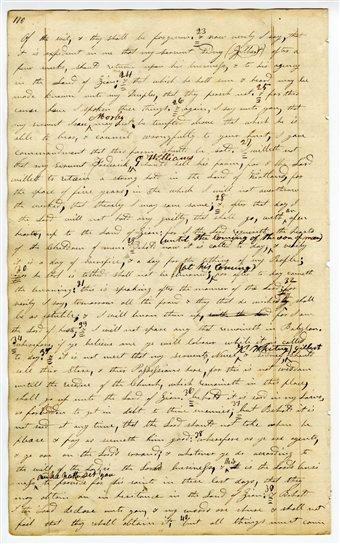 110
Of the evil, & they shall be forgiven. 23 & now verily I say, that
it is expedient in me that my servant Sidney (Gilbert) after a
few weeks, should return upon his business, & to his agency
in the Land of Zion; 24 & that which he hath seen & heard may be
made known unto my Deciples, that they perish not. 25 & for this
cause have I spoken these things. 26 & again, I say unto you, that
my servant Isaac Morley may not be tempted above that which he is
able to bear, & council wrongfully to your hurt, I gave
commandment that this farm should be sold. 27 I willeth not
that my servant Frederick G. Williams should sell his farm, for I the Lord
willeth to retain a strong hold in the Land of Kirtland, for
the space of five years, in the which I will not overthrow
the wicked, that thereby I may save some; 28 & after that day I
the Lord will not hold any guilty, that shall go, with open
hearts, up to the Land of Zion: for I the Lord requireth the hearts
of the children of men. 29 Behold now it is called to day, (until the coming of the son of man) & verily
it is a day of sacrifice, & a day for the tithing of my People;
30 for he that is tithed shall not be burned, (at his coming) for after to day cometh
the burning: 31 this is speaking after the manner of the Lord; for
verily I say, tomorrow all the proud & they that do wickedly shall
be as stubble; & I will burn them up, for I am
the Lord of hosts 32 & I will not spare any that remaineth in Babylon;
33 wherefore, if ye believe me ye will labour while it is called
34 to day. 35 & it is not meet that my servants, Newel K. Whitney & Sidney Gilbert should
sell their store, & their Possessions here, for this is not wisdom
untill the residue of the Church, which remaineth in this place,
shall go up unto the Land of Zion; 36 Behold it is said in my laws,
or forbidden to get in debt to thine enemies; 37 but Behold it is
not said at any time, that the Lord should not take when he
please & pay as seemeth him good: 38 wherefore as ye are agents,
& ye are on the Lord's errand; & whatever ye do according to
the will of the Lord is the Lord's business, & he
hath set you to provide for his saints in these last days, that they
may obtain an inheritance in the Land of Zion; 39 & Behold
I the Lord declare unto you, & my words are shure & shall not
fail that they shall obtain it; 40 but all things must come